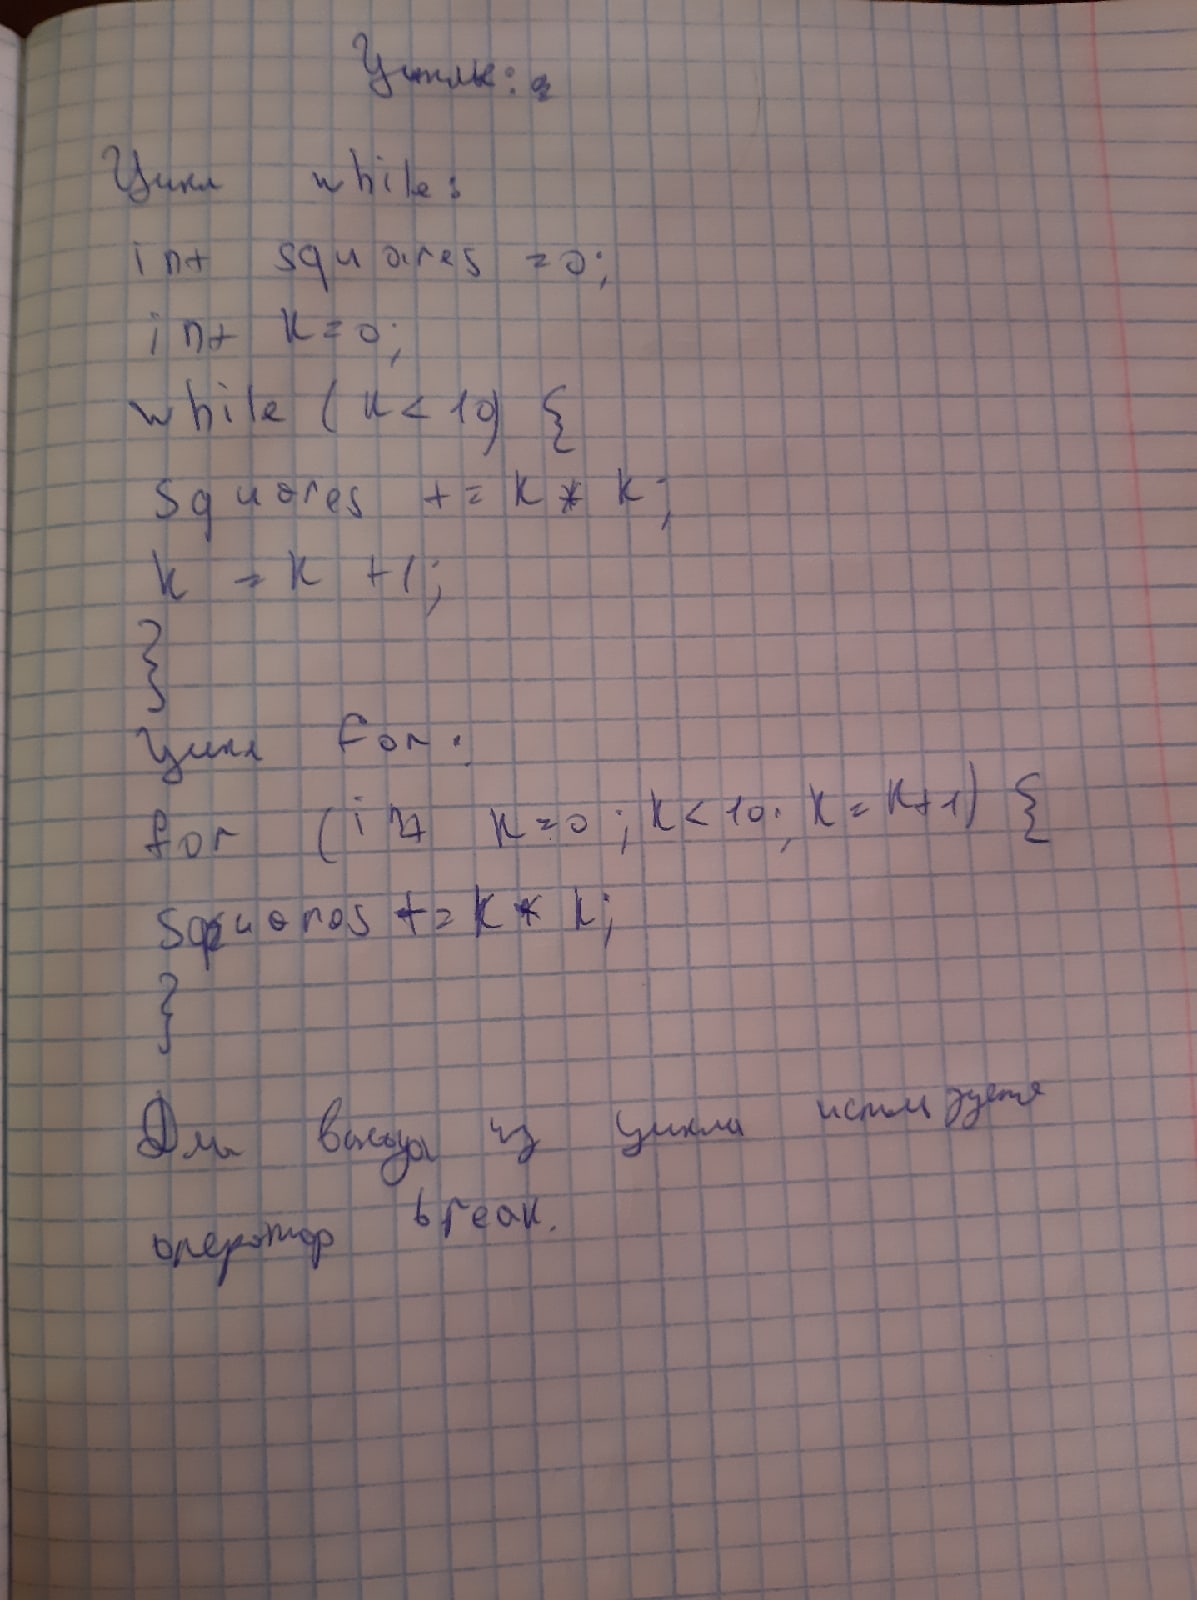 Циклы:
Цикл while:
int squares = 0;
int k = 0;
while (k < 10) {
squares += k * k;
k = k + 1;
}
Цикл for:
for (int k = 0; k < 10; k = k + 1) {
squares += k * k;
}
Для выхода из цикла используется
оператор break.